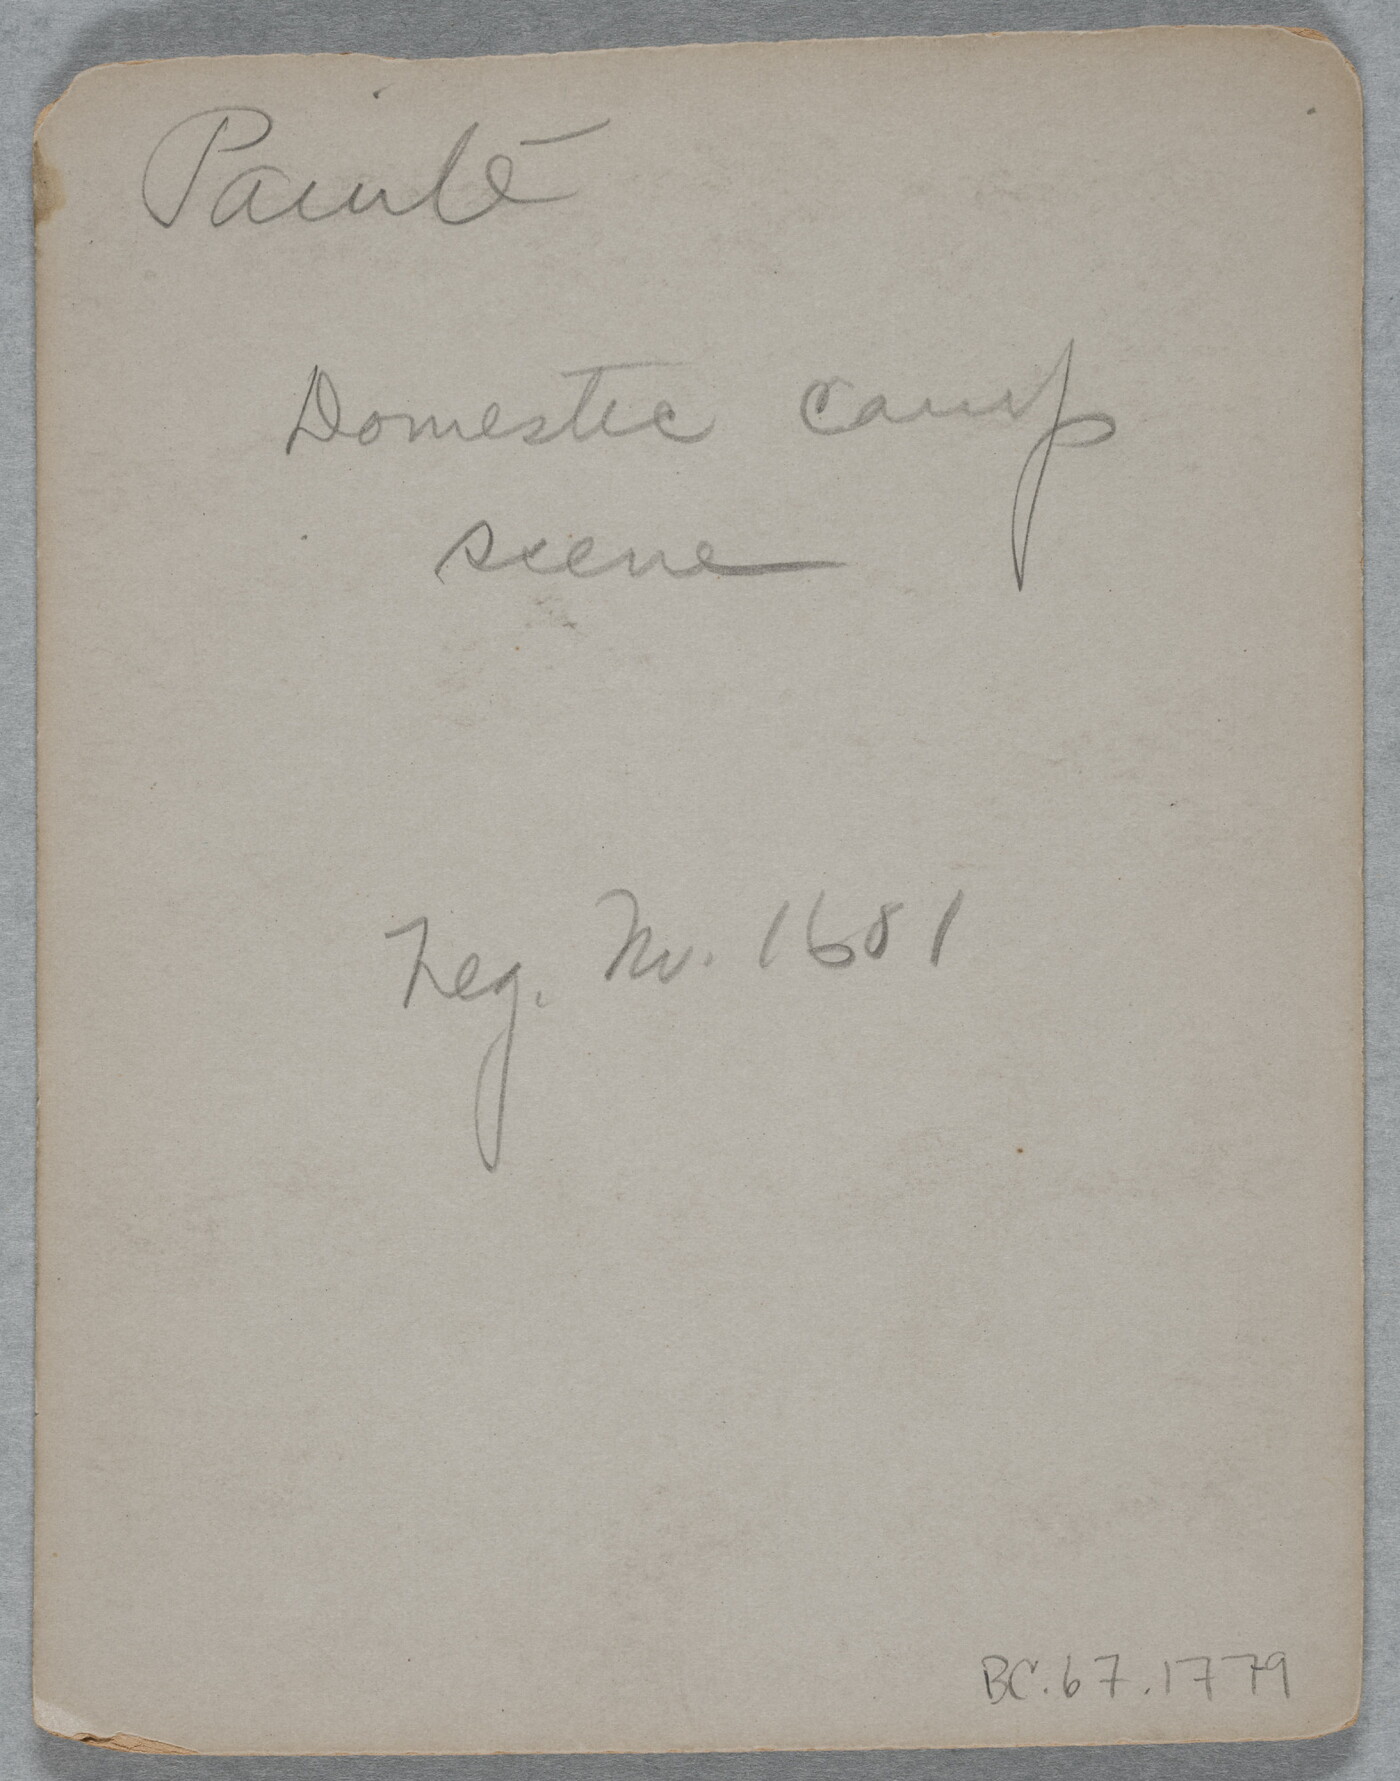 Paiute
Domestic camp
scene
Neg. No. 1681
BC.67.1779